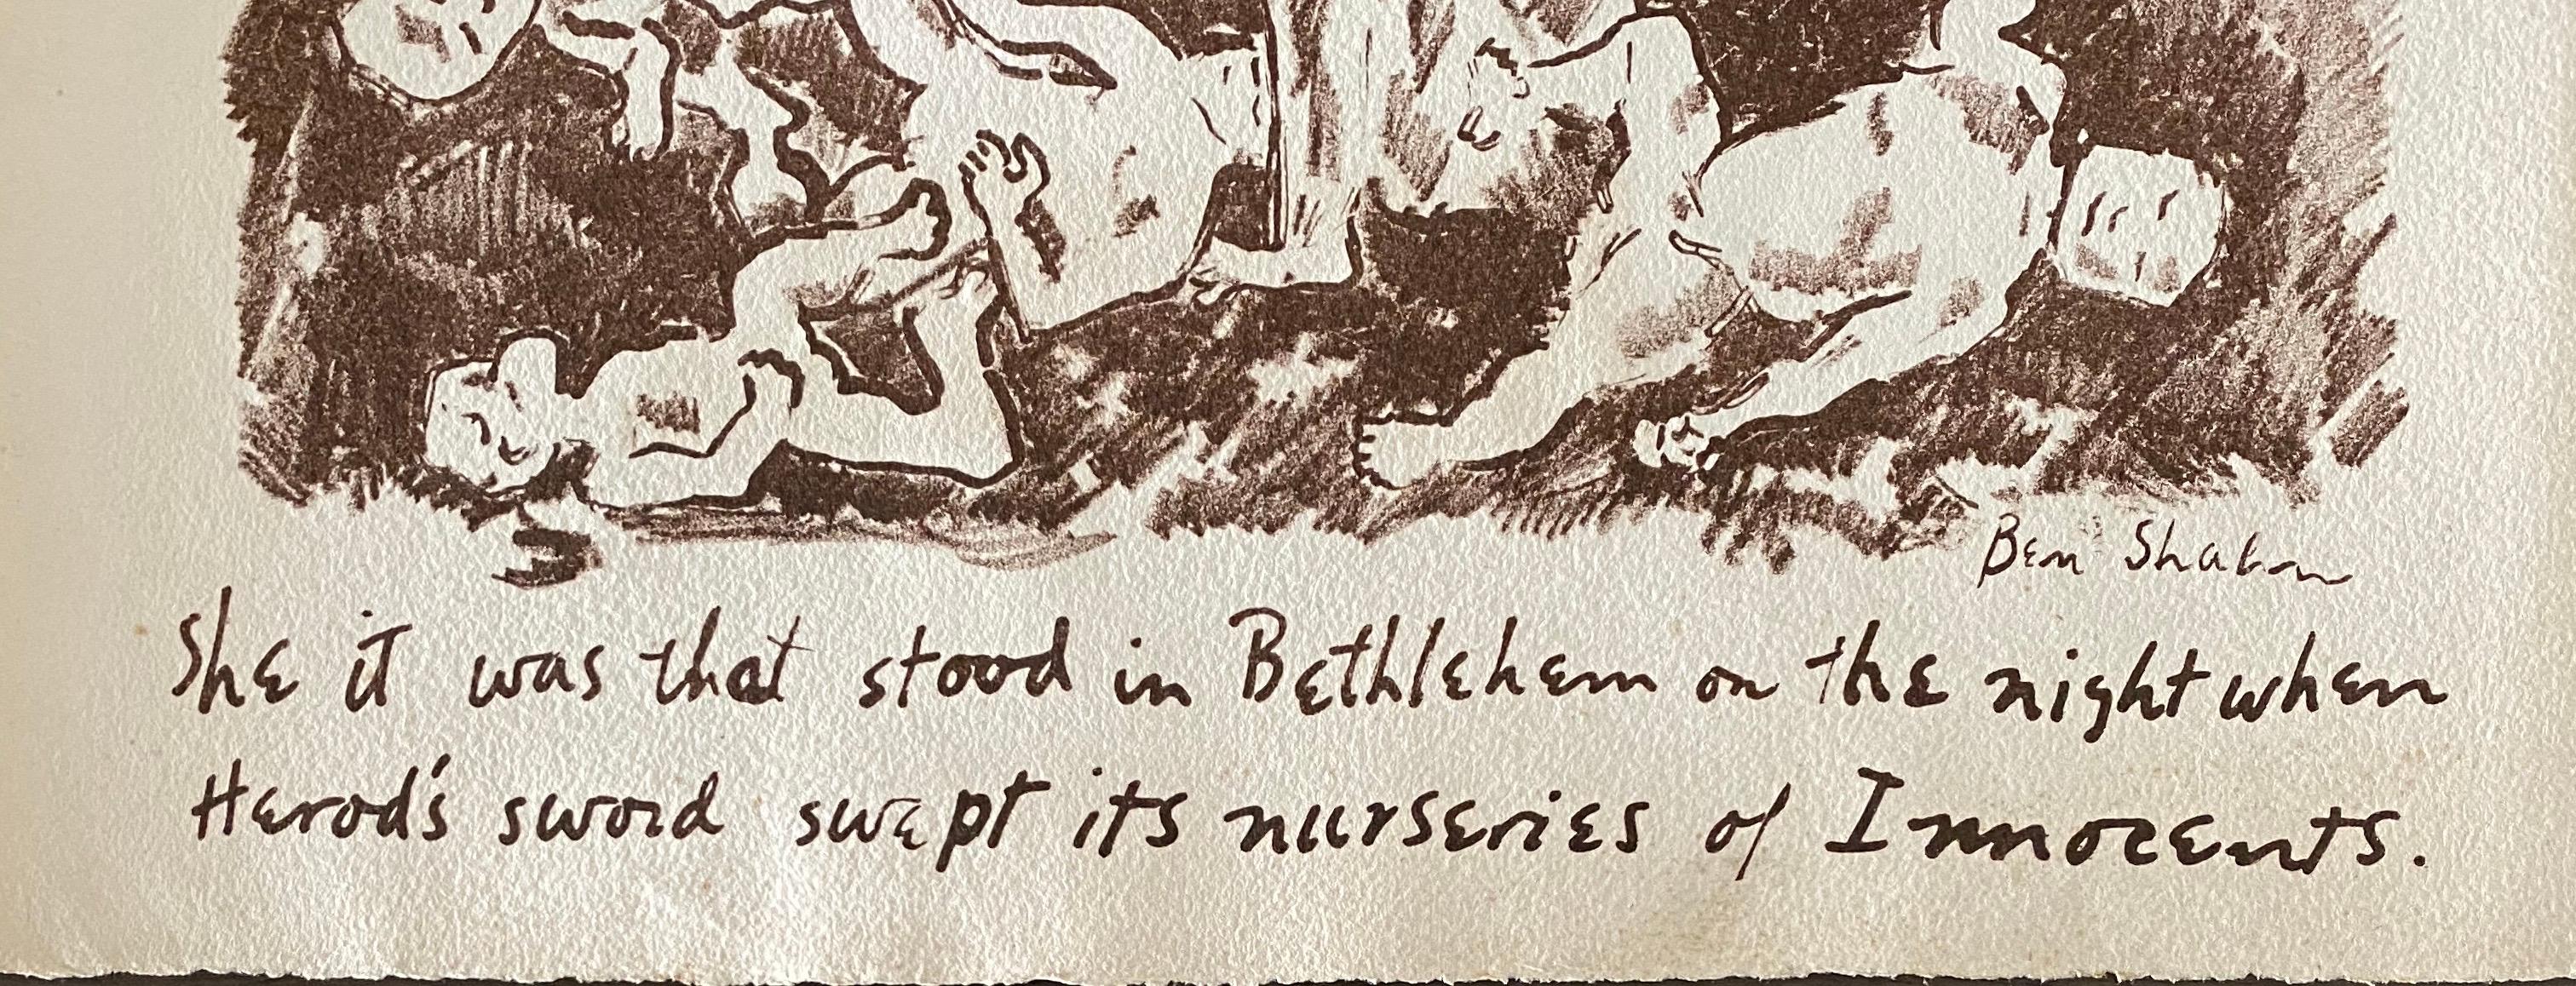 Ben Shahn
She it was that stood in Bethlehem on the night when
Herod's sword swept its nurseries of Innocents.